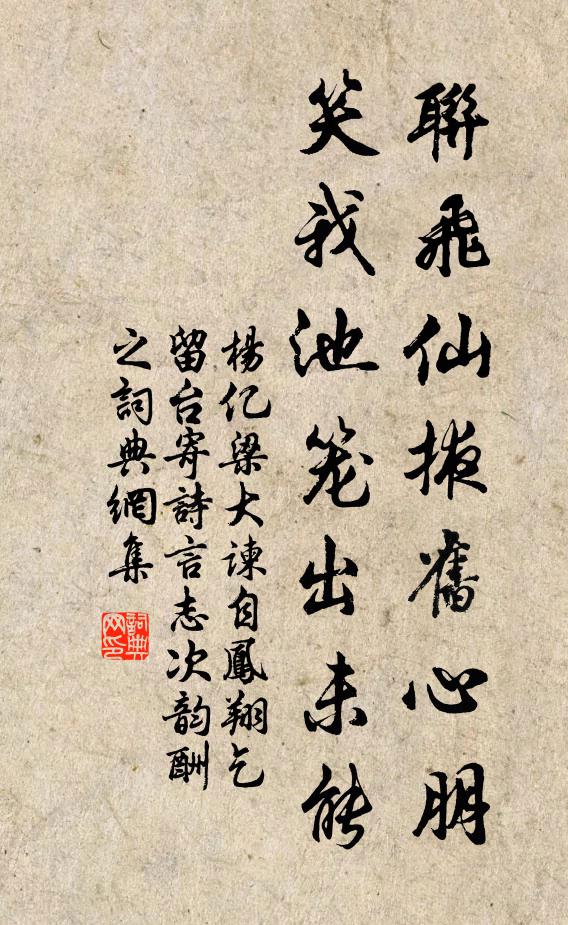 聯飛仙掖舊心朋
笑我池笼出未能
楊亿梁大諫自鳳翔乞
留台寄詩言志次韵酬
之詞典網集
詞典网印